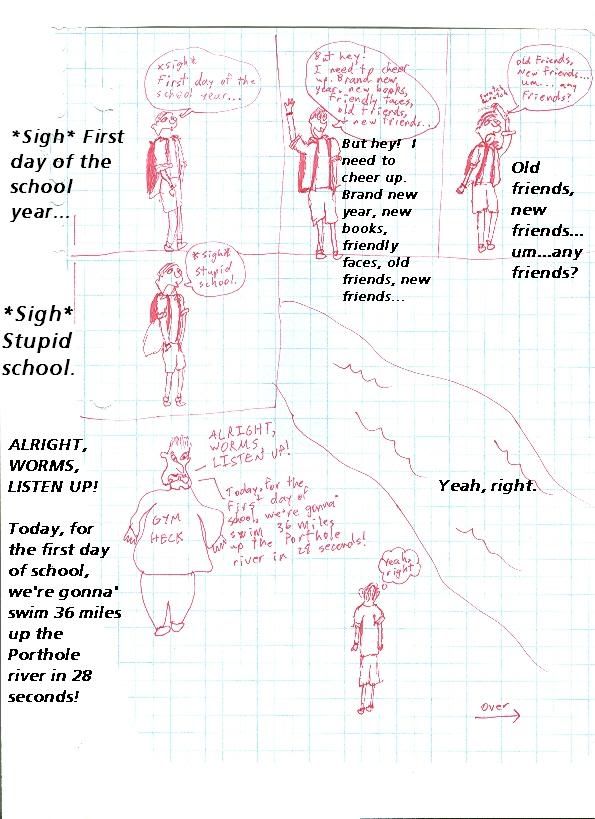 *Sigh*
First day of the
school year...
But hey!
I need to cheer
up. Brand new
year, new books,
friendly faces,
old friends,
new friends...
old friends,
New friends...
um... any
friends?
*Sigh* First
day of the
school
year...
But hey! I
need to
cheer up.
Brand new
year, new
books,
friendly
faces, old
friends, new
friends...
Old
friends,
new
friends...
um...any
friends?
*Sigh*
Stupid
school.
*Sigh*
Stupid
school.
ALRIGHT,
WORMS,
LISTEN UP!
Today, for the
first day of
school, we're gonna'
swim 36 miles
up the Porthole
river in 28 seconds!
GYM
HECK
ALRIGHT,
WORMS,
LISTEN UP!
Today, for
the first day
of school,
we're gonna'
swim 36 miles
up the
Porthole
river in 28
seconds!
Yeah, right.
Yeah,
right
Over